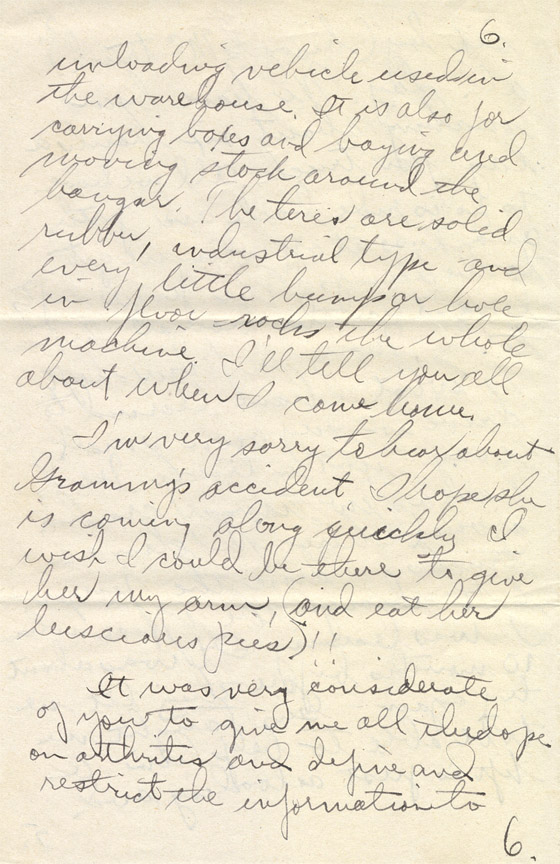 6.
unloading vehicle used in
the warehouse. It is also for
carrying boxes and baying and
moving stock around the
hangar. The teres are solid
rubber, industrial type and
every little bump or hole
in floor rocks the whole
machine. I'll tell you all
about when I come home.
I'm very sorry to hear about
Grammy's accident. I hope she
is coming along quickly I
wish I could be there to give
her my arm, (and eat her
luscious pies)!!
It was very considerate
of you to give me all the dope
on arthrites and define and
restrict the information to
6.